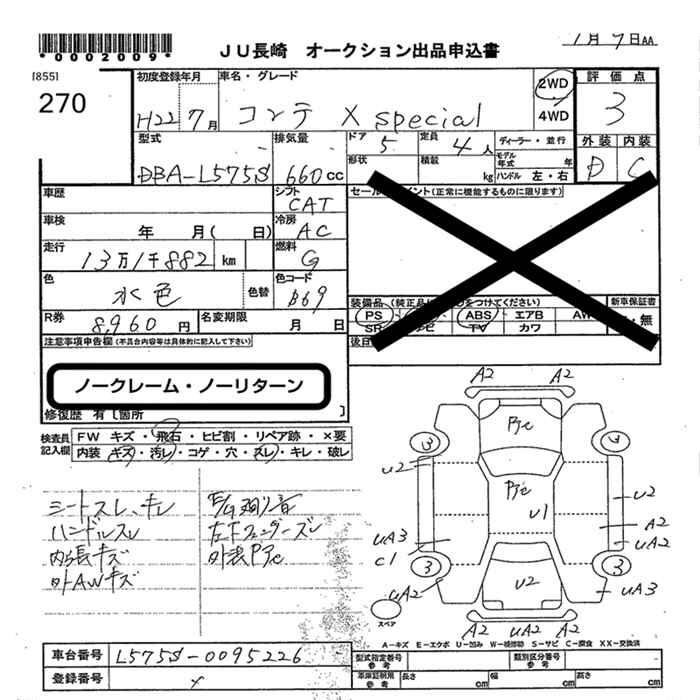 *0002009*
JU長崎 オークション出品申込書
1月7日AA
[855]
270
初度登録年月
車名・グレード
H22 7月
コンテ X special
2WD
4WD
評価点
3
外装 内装
D C
型式
DBA-L575S
排気量
660cc
ドア 5
定員 4人
ディーラー・並行
形状
積載 kg
モデル年式 年
ハンドル 左・右
車歴
シフト
CAT
車検
年 月( 日)
冷房
AC
走行
13万1千882 km
燃料
G
色
水色
色替
色コード
B69
R券
8,960円
名変期限
月 日
セール
イント(正常に機能するものに限ります)
装備品
をつけてください)
新車保証書
無
PS
ABS
エアB
AW
SR
ナビ
TV
カワ
後日
注意事項申告欄(不具合内容等は具体的に記入して下さい)
ノークレーム・ノーリターン
修復歴 有〔箇所 〕
検査員記入欄
FW キズ・飛石・ヒビ割・リペア跡・×要
内装・キズ・汚レ・コゲ・穴・スレ・キレ・破レ
シートスレ、キレ
ハンドルスレ
内張キズ
外AWキズ
左Fフェンダーズレ
外装Pje
A2 A2
Pje
3 4
U2
Pje
U1
U2
A2
UA3
UA2
C1
3 3
UA2
U2
UA3
スペア
A2 UA2 A2
A-キズ E-エクボ U-凹み W-補修跡 S-サビ C-腐食 XX-交換済
車台番号
L575S-0095226
登録番号
型式指定番号
参考
類別区分番号
参考
車庫証明用
参考
長さ cm
幅 cm
高さ cm